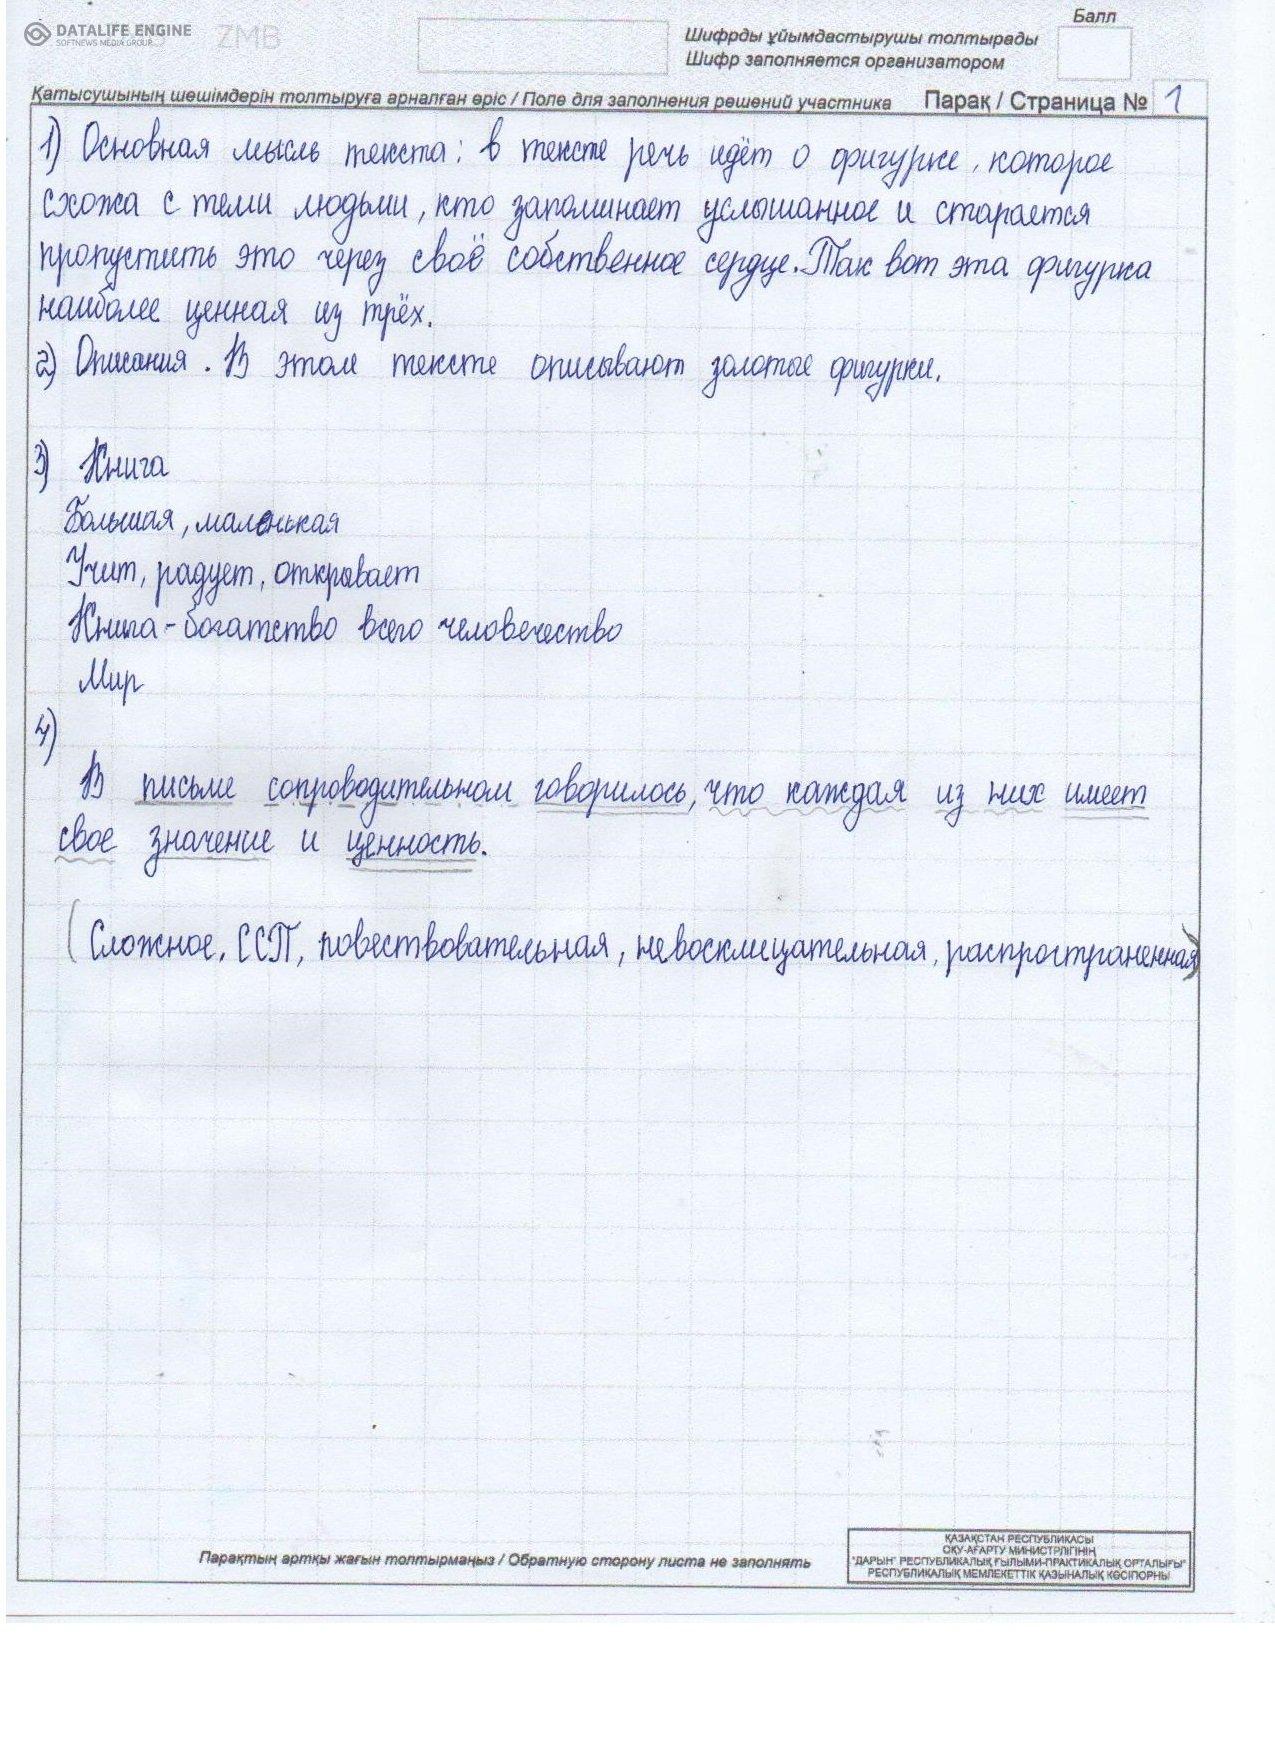 DATALIFE ENGINE
SOFTNEWS MEDIA GROUP
ZMB
Балл
Шифрды ұйымдастырушы толтырады
Шифр заполняется организатором
Қатысушының шешімдерін толтыруға арналған өріс / Поле для заполнения решений участника Парақ / Страница № 1
1) Основная мысль текста: в тексте речь идёт о фигурке, которое
схожа с теми людьми, кто запоминает услышанное и старается
пропустить это через своё собственное сердце. Так вот эта фигурка
наиболее ценная из трёх.
2) Описания. В этом тексте описывают золотые фигурки.
3) Книга
Большая, маленькая
Учит, радует, открывает
Книга - богатство всего человечество
Мир
4)
В письме сопроводительном говорилось, что каждая из них имеет
свое значение и ценность.
(Сложное, ССП, повествовательная, невосклицательная, распространенная)
Парақтың артқы жағын толтырмаңыз / Обратную сторону листа не заполнять
ҚАЗАҚСТАН РЕСПУБЛИКАСЫ
ОҚУ-АҒАРТУ МИНИСТРЛІГІНІҢ
"ДАРЫН" РЕСПУБЛИКАЛЫҚ ҒЫЛЫМИ-ПРАКТИКАЛЫҚ ОРТАЛЫҒЫ"
РЕСПУБЛИКАЛЫҚ МЕМЛЕКЕТТІК ҚАЗЫНАЛЫҚ КӘСІПОРНЫ